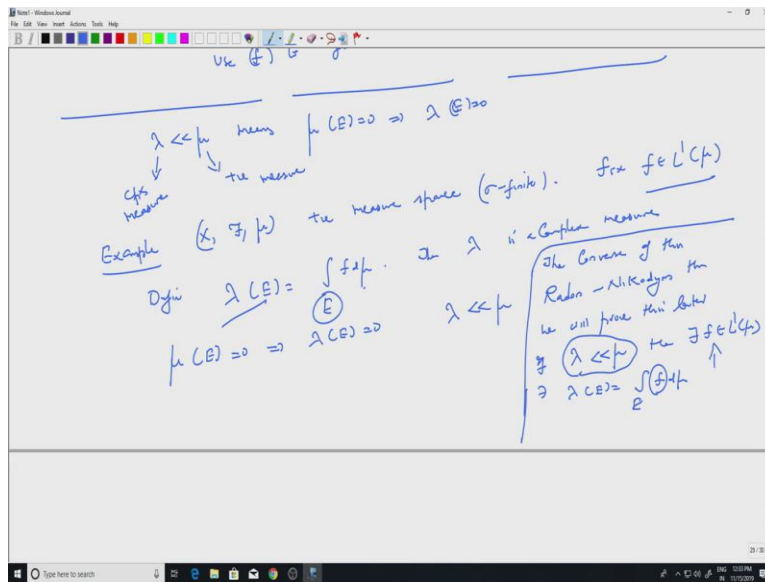 Note1 - Windows Journal
File Edit View Insert Actions Tools Help
Use (f) to
λ << μ means μ(E)=0 => λ(E)=0
cpx measure
+ve measure
Example (X, F, μ) +ve measure space (σ-finite). Fix f ∈ L¹(μ)
Defin λ(E) = ∫_E f dμ. Then λ is a Complex measure
μ(E)=0 => λ(E)=0 λ << μ
The Converse of this
Radon-Nikodym thm
We will prove this later
If λ << μ the ∃ f ∈ L¹(μ)
∋ λ(E) = ∫_E f dμ
25 / 30
Type here to search
ENG 12:03 PM
IN 11/15/2019